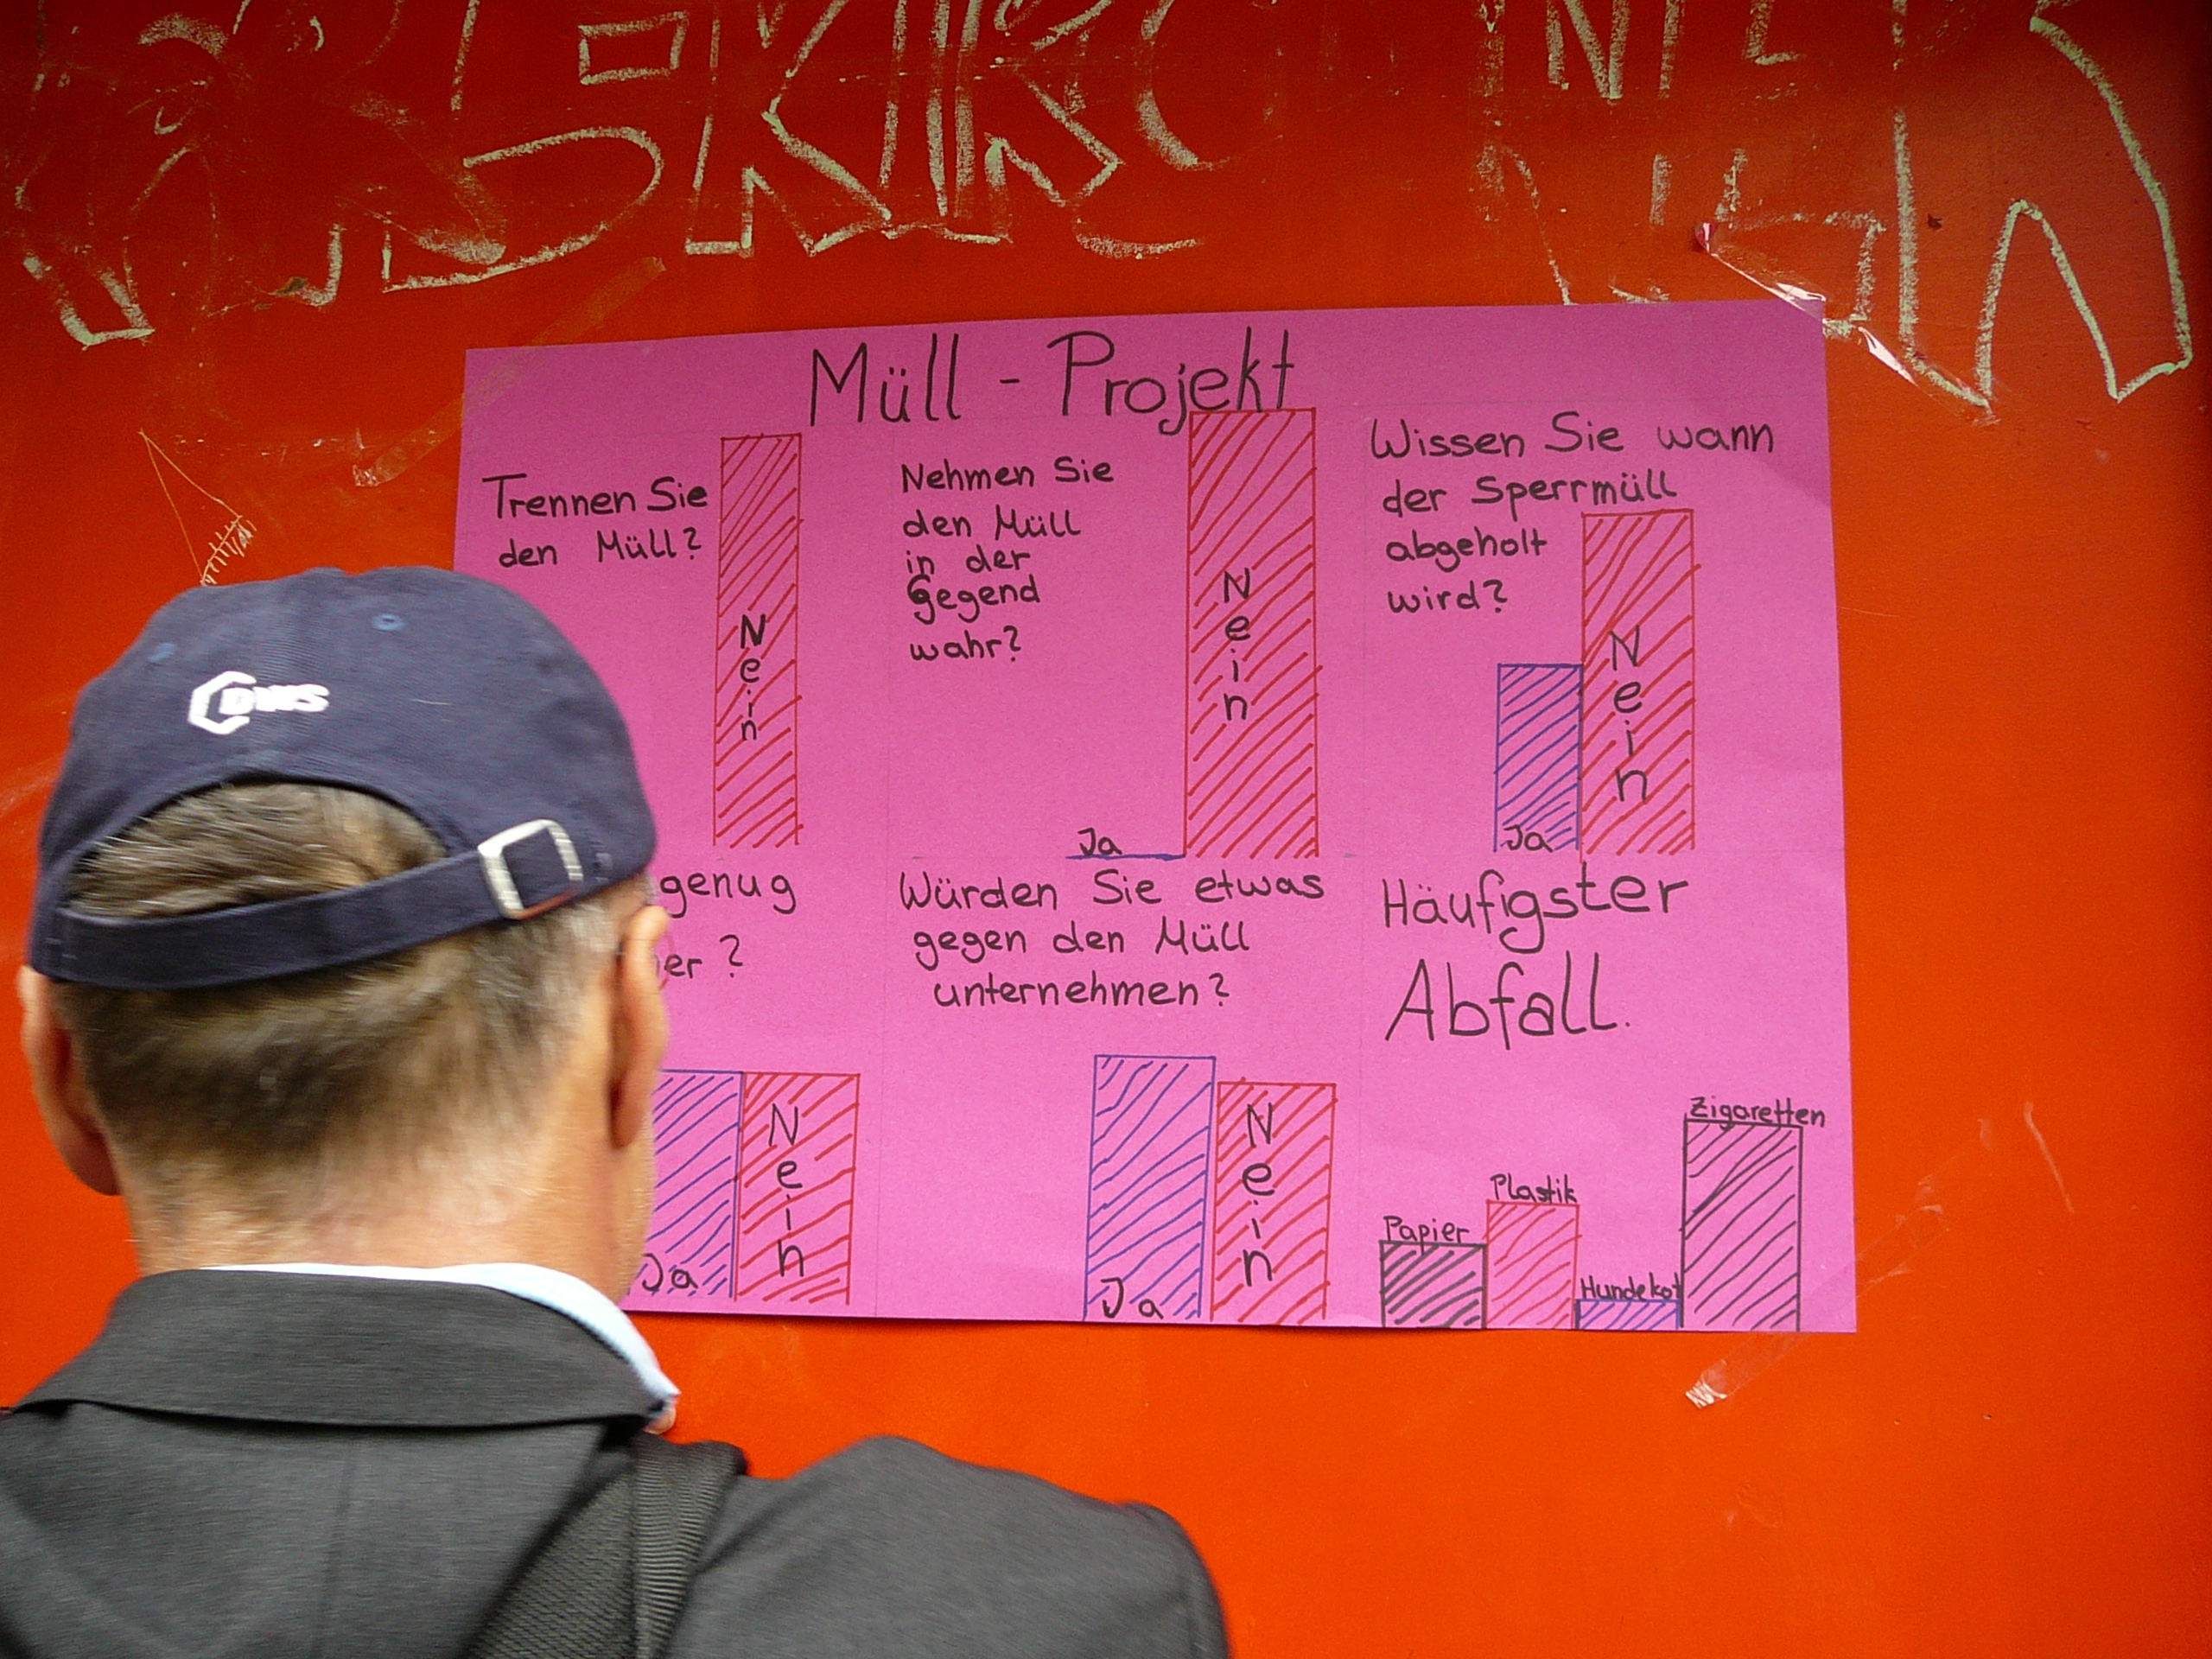 Müll - Projekt
Trennen Sie
den Müll?
Nein
Nehmen Sie
den Müll
in der
Gegend
wahr?
Ja
Nein
Wissen Sie wann
der Sperrmüll
abgeholt
wird?
Ja
Nein
genug
er?
Ja
Nein
Würden Sie etwas
gegen den Müll
unternehmen?
Ja
Nein
Häufigster
Abfall.
Papier
Plastik
Hundekot
Zigaretten
DWS